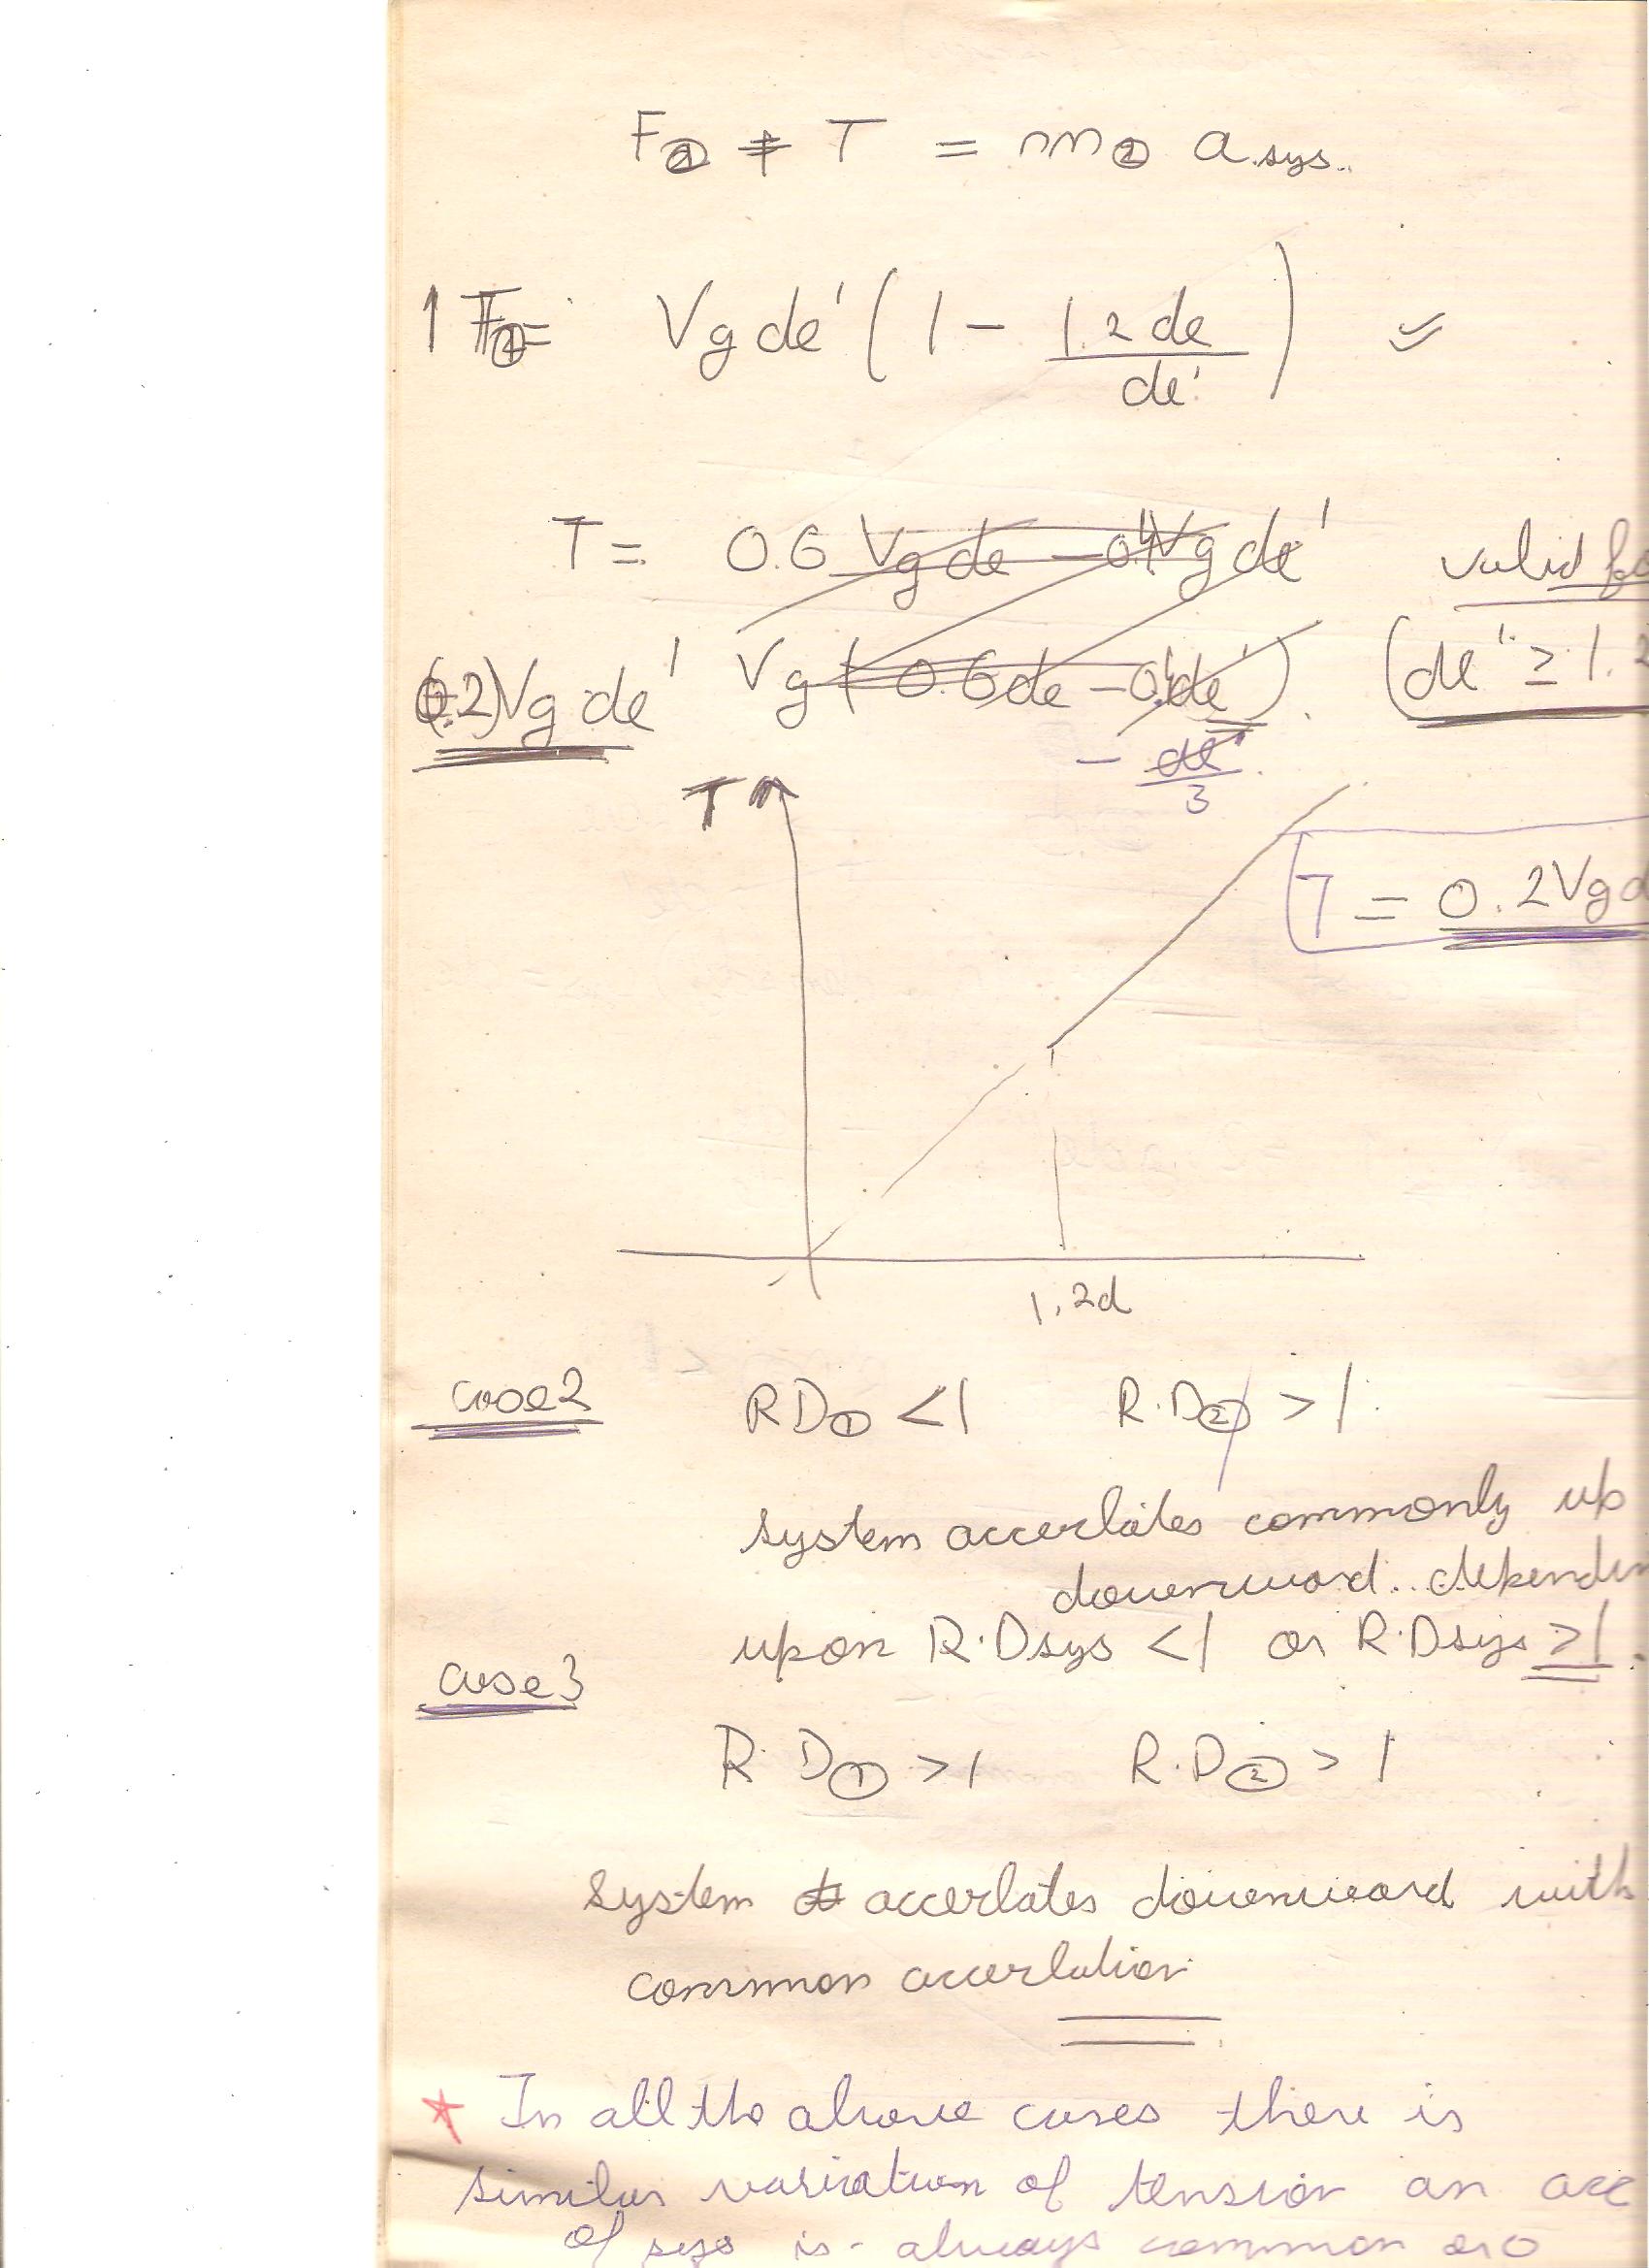 F② ∓ T = m② a sys.
↑ F② = Vg de' (1 - 1.2 de / de')
T = 0.6 Vg de - 0.4 Vg de' valid
(0.2) Vg de' Vg (0.6 de - 0.4 de'). (de' ≥ 1.2
- de' / 3
T
T = 0.2 Vg d
1.2d
case 2 RD① < 1 R.D② > 1
system accerlates commonly up
downward.. dependin
upon R.Dsys < 1 or R.Dsys > 1.
case 3
R.D① > 1 R.D② > 1
system accerlates downward with
common accerlation
* In all the above cases there is
similar variation of tension an acc
of sys is always common